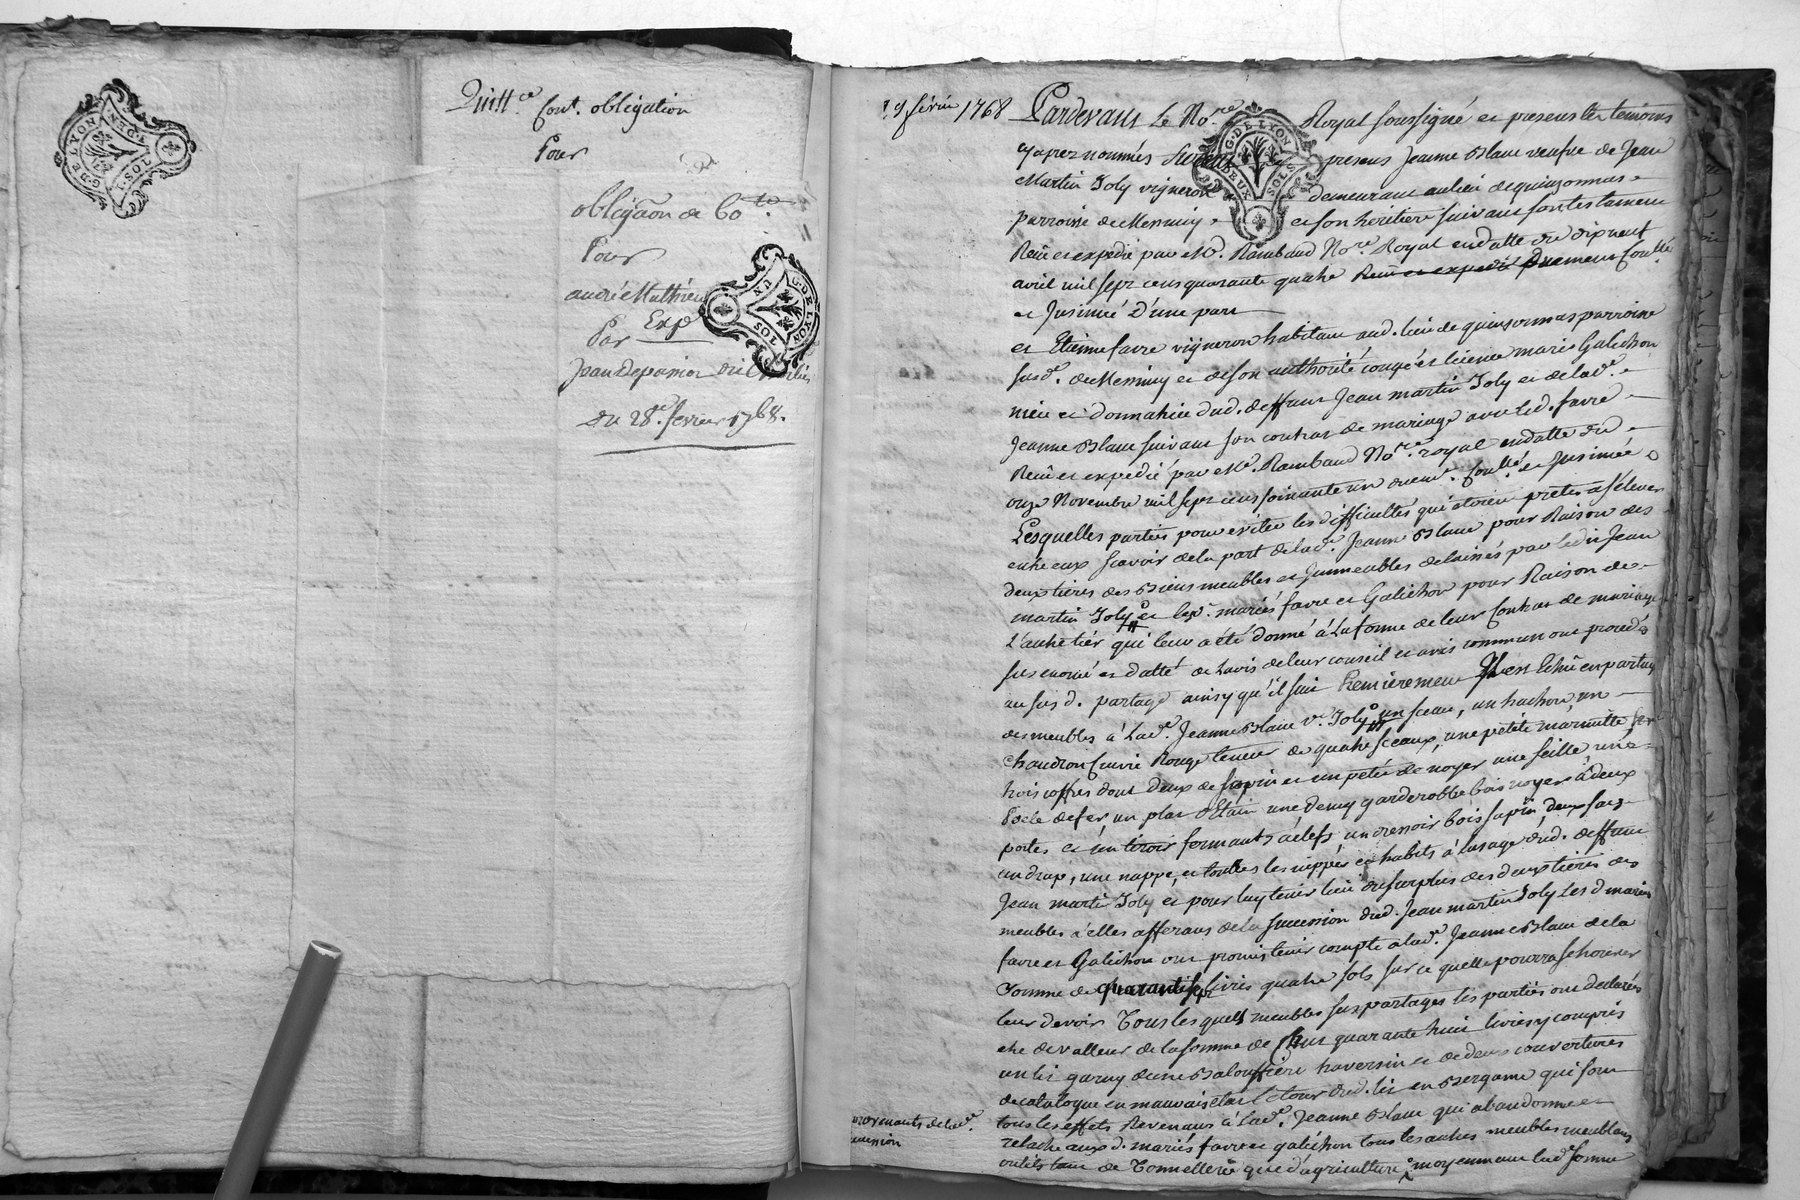 G. DE LYON
1. SOL 1. DEN
Quitt.ce Cont. obligation
Pour
obligãon de 60 lt.
Pour
andré Mathieu
Exp
Par
Jean depamior dit
du 28.e fevrier 1768.
G. DE LYON
UN SOLS
19 février 1768 Pardevant Le No.re Royal soussigné et presens les temoins
G. DE LYON
DEUX SOLS
cy aprez nommés furent presens Jeanne Blanc veufve de Jean
Martin Joly vigneron demeurant au lieu de quinsonnas
parroisse de Messimy et son heritiere suivant son testament
Reçu et expedié par Me. Rambaud No.re Royal en datte du dix neuf
avril mil sept cens quarante quatre Reçu et expedié duement Con.lé
et Insinué d'une part
et Etienne favre vigneron habitant aud. lieu de quinsonnas parroisse
susd. de Messimy et de son authorité congé et licence marie Galichon
niéce et donnatrice dud. deffunt Jean martin Joly et de lad.e
Jeanne Blanc suivant son contrat de mariage avec led. favre
Reçu et expedié par Me. Rambaud No.re royal en datte du
onze Novembre mil sept cens soixante un duem.t Con.lé et Insinué
Lesquelles parties pour eviter les difficultés qui étoient pretes à s'élever
entre eux scavoir de la part de lad.e Jeanne Blanc pour Raison des
deux tiers des Biens meubles et Immeubles delaissés par ledit Jean
martin Joly et les d. mariés favre et Galichon pour Raison de
L'autre tier qui leur a été donné à la forme de leur Contrat de mariage
sus enoncé et datté de l'avis de leur conseil et avis commun ont procedé
au susd. partage ainsy qu'il suit Premierement Il est Echû en partage
des meubles à lad.e Jeanne Blanc v.e Joly un sceau, un hachon, un
chaudron Cuivre Rouge teneur de quatre sceaux, une petite marmitte fer
trois coffres dont deux de sapin et un petit de noyer une seille une
Poele de fer, un plat Etain une demy garderobbe bois noyer à deux
portes et un tiroir fermants à clefs un dressoir bois sapin deux sacs
un drap, une nappe, et touttes les nippes et habits à l'usage dud. deffunt
Jean martin Joly et pour luy tenir lieu du surplus des deux tiers des
meubles à elles afferans de la succession dud. Jean martin Joly Les d mariés
favre et Galichon ont promis tenir compte a lad.e Jeanne Blanc de la
somme de quarante sept livres quatre sols sur ce quelle pourra se trouver
leur devoir Tous lesquels meubles sus partagés les parties ont declarés
etre de valleur de la somme de Cent quarante huit livres y compris
un lit garny d'une Balouffiere traversin et de deux couvertures
de catalogne en mauvais état le tour dud. lit en Bergame qui sont
tous les effets Revenans à lad.e Jeanne Blanc qui abandonne et
relache aux d. mariés favre et galichon tous les autres meubles meublans
outils tant de Tonnellerie que d'agriculture moyennant lad.e somme
provenants de lad.e
succession